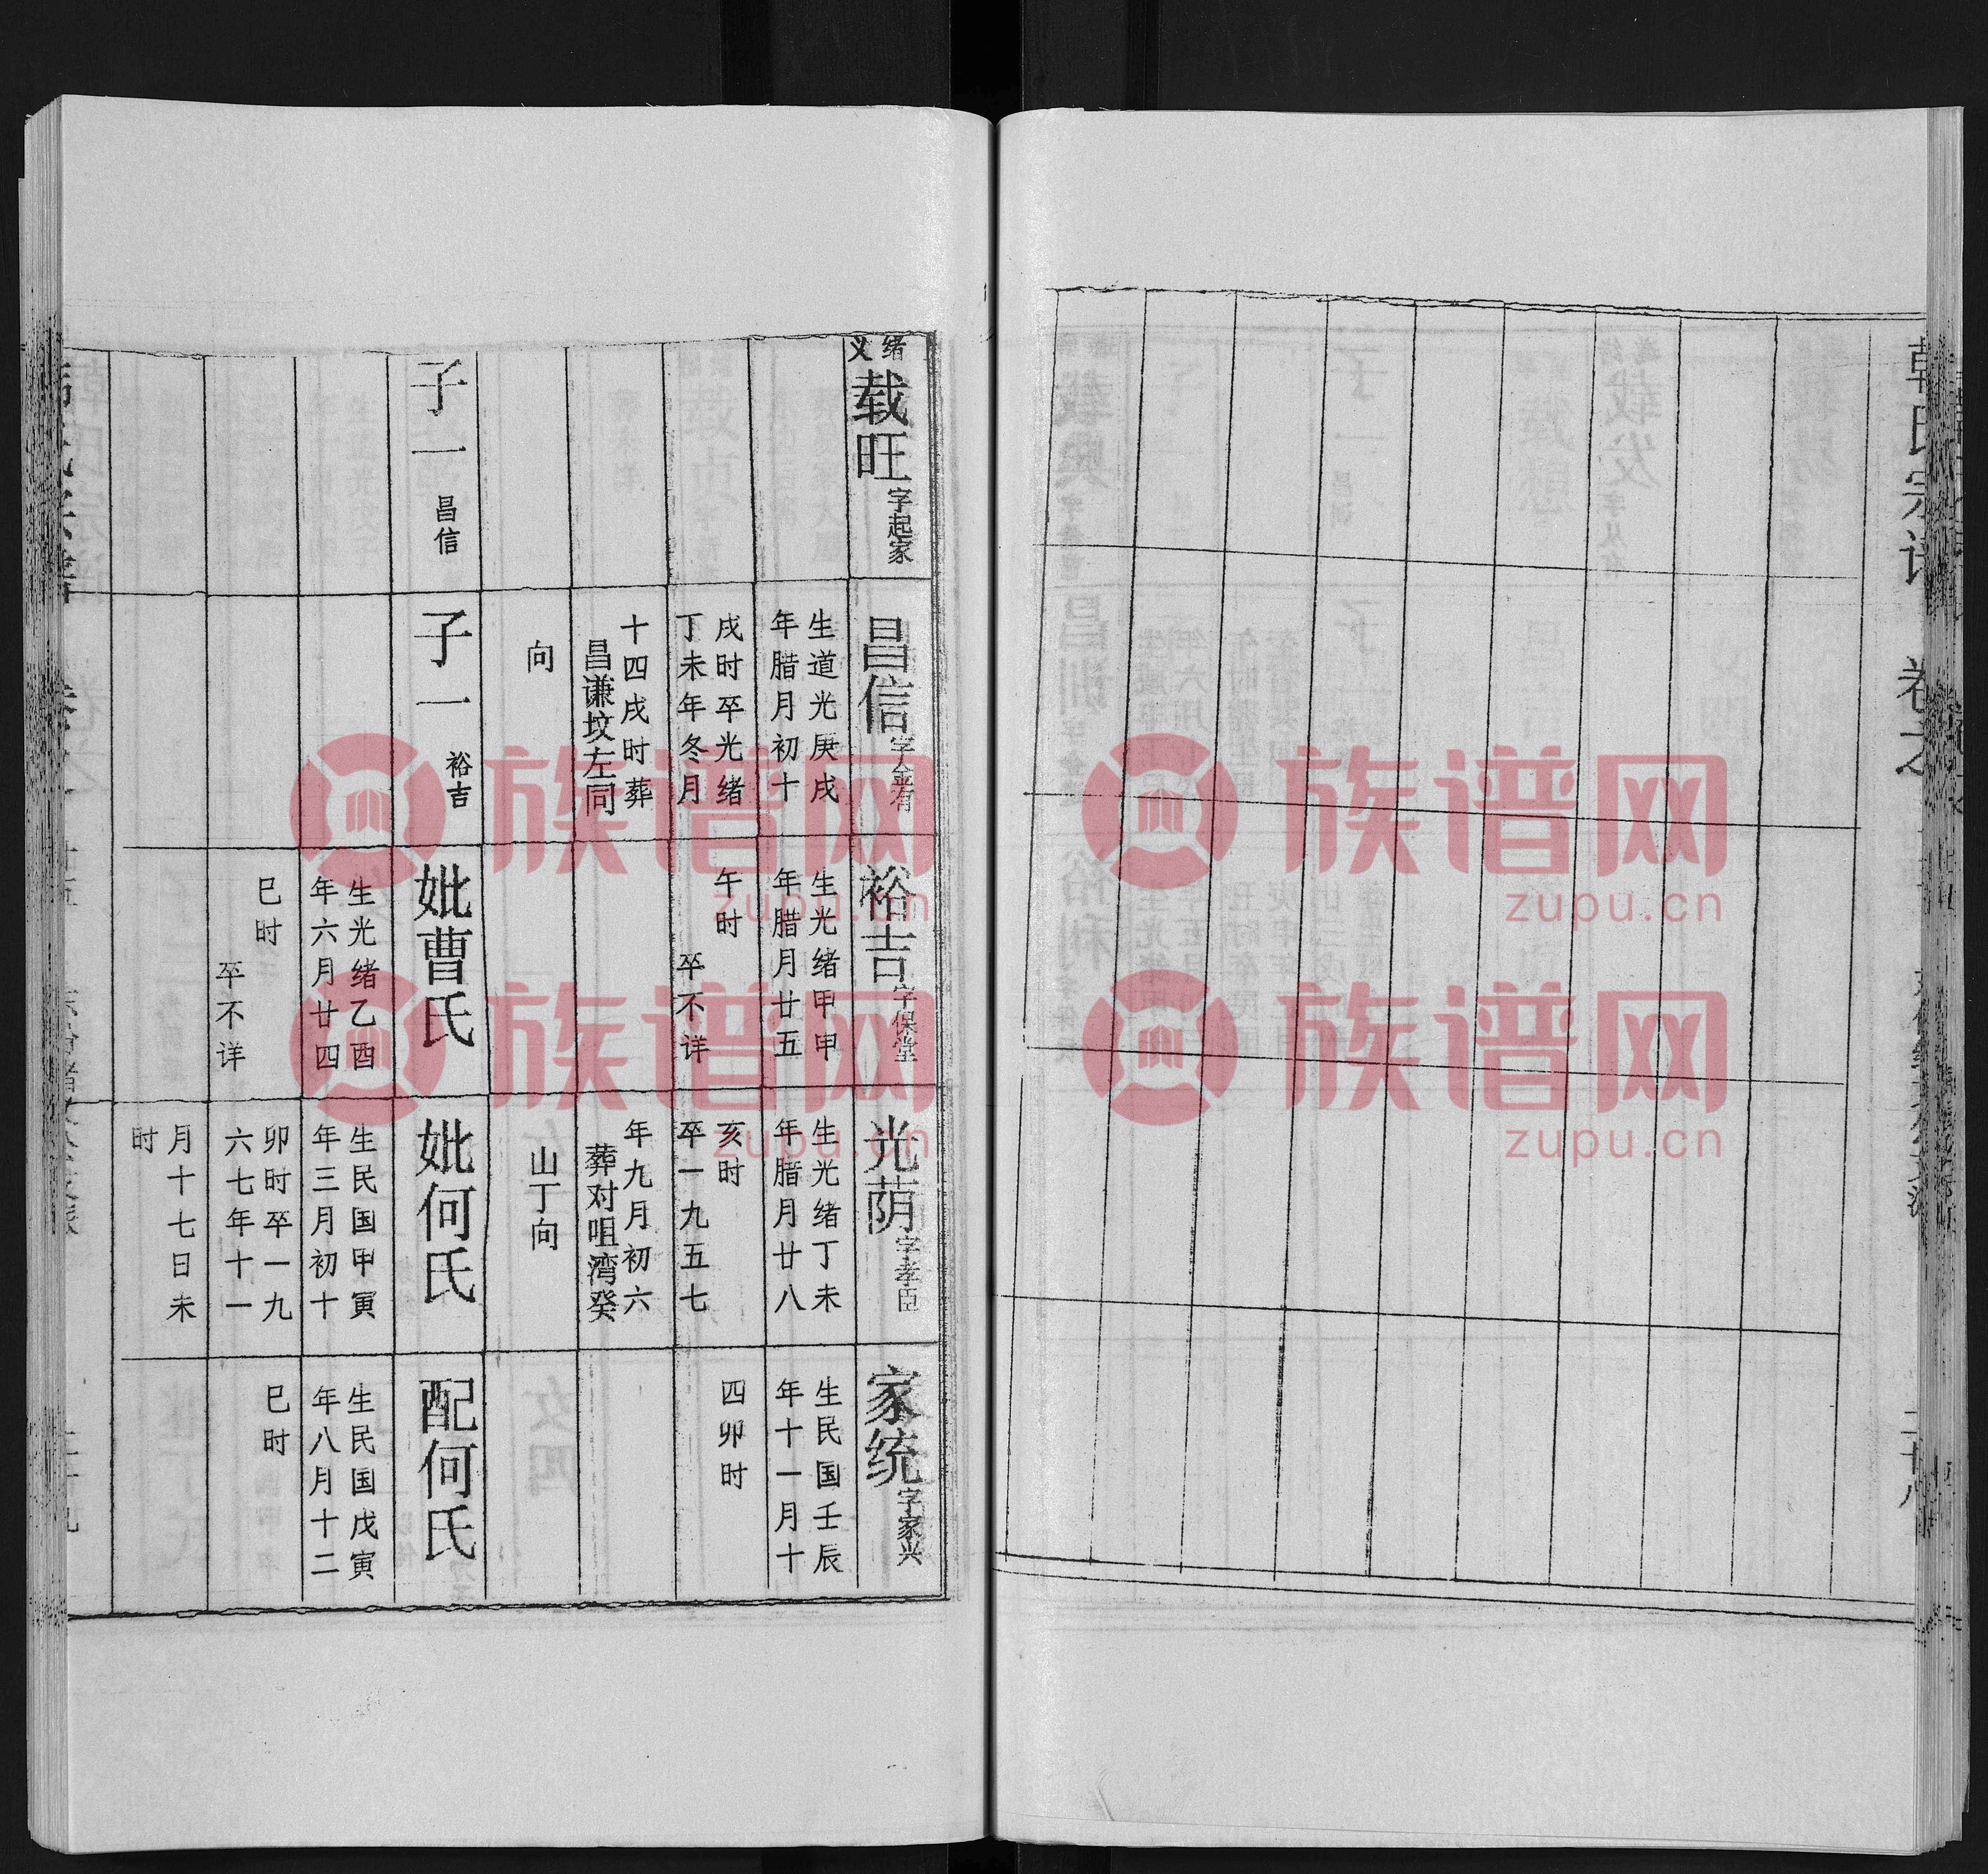 韩氏宗谱
卷之
二十八
绪义
载旺字起家
子一
昌信
昌信字金有
生道光庚戌
年腊月初十
戌时卒光绪
丁未年冬月
十四戌时葬
昌谦坟左同
向
子一
裕吉
裕吉字保堂
生光绪甲申
年腊月廿五
午时
卒不详
妣曹氏
生光绪乙酉
年六月廿四
巳时
卒不详
光荫字孝臣
生光绪丁未
年腊月廿八
亥时
卒一九五七
年九月初六
葬对咀湾癸
山丁向
妣何氏
生民国甲寅
年三月初十
卯时卒一九
六七年十一
月十七日未
时
家统字家兴
生民国壬辰
年十一月十
四卯时
配何氏
生民国戊寅
年八月十二
巳时
族谱网
zupu.cn
族谱网
zupu.cn
族谱网
zupu.cn
族谱网
zupu.cn